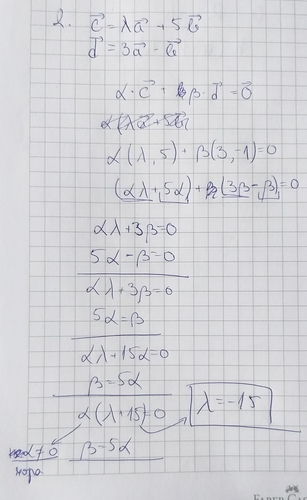 2. c⃗ = λa⃗ + 5b⃗
d⃗ = 3a⃗ - b⃗
α·c⃗ + β·d⃗ = 0⃗
α(λ, 5) + β(3, -1) = 0
(αλ + 5α) + (3β - β) = 0
αλ + 3β = 0
5α - β = 0
αλ + 3β = 0
5α = β
αλ + 15α = 0
β = 5α
α(λ + 15) = 0
λ = -15
α ≠ 0
β = 5α
FABER-CA